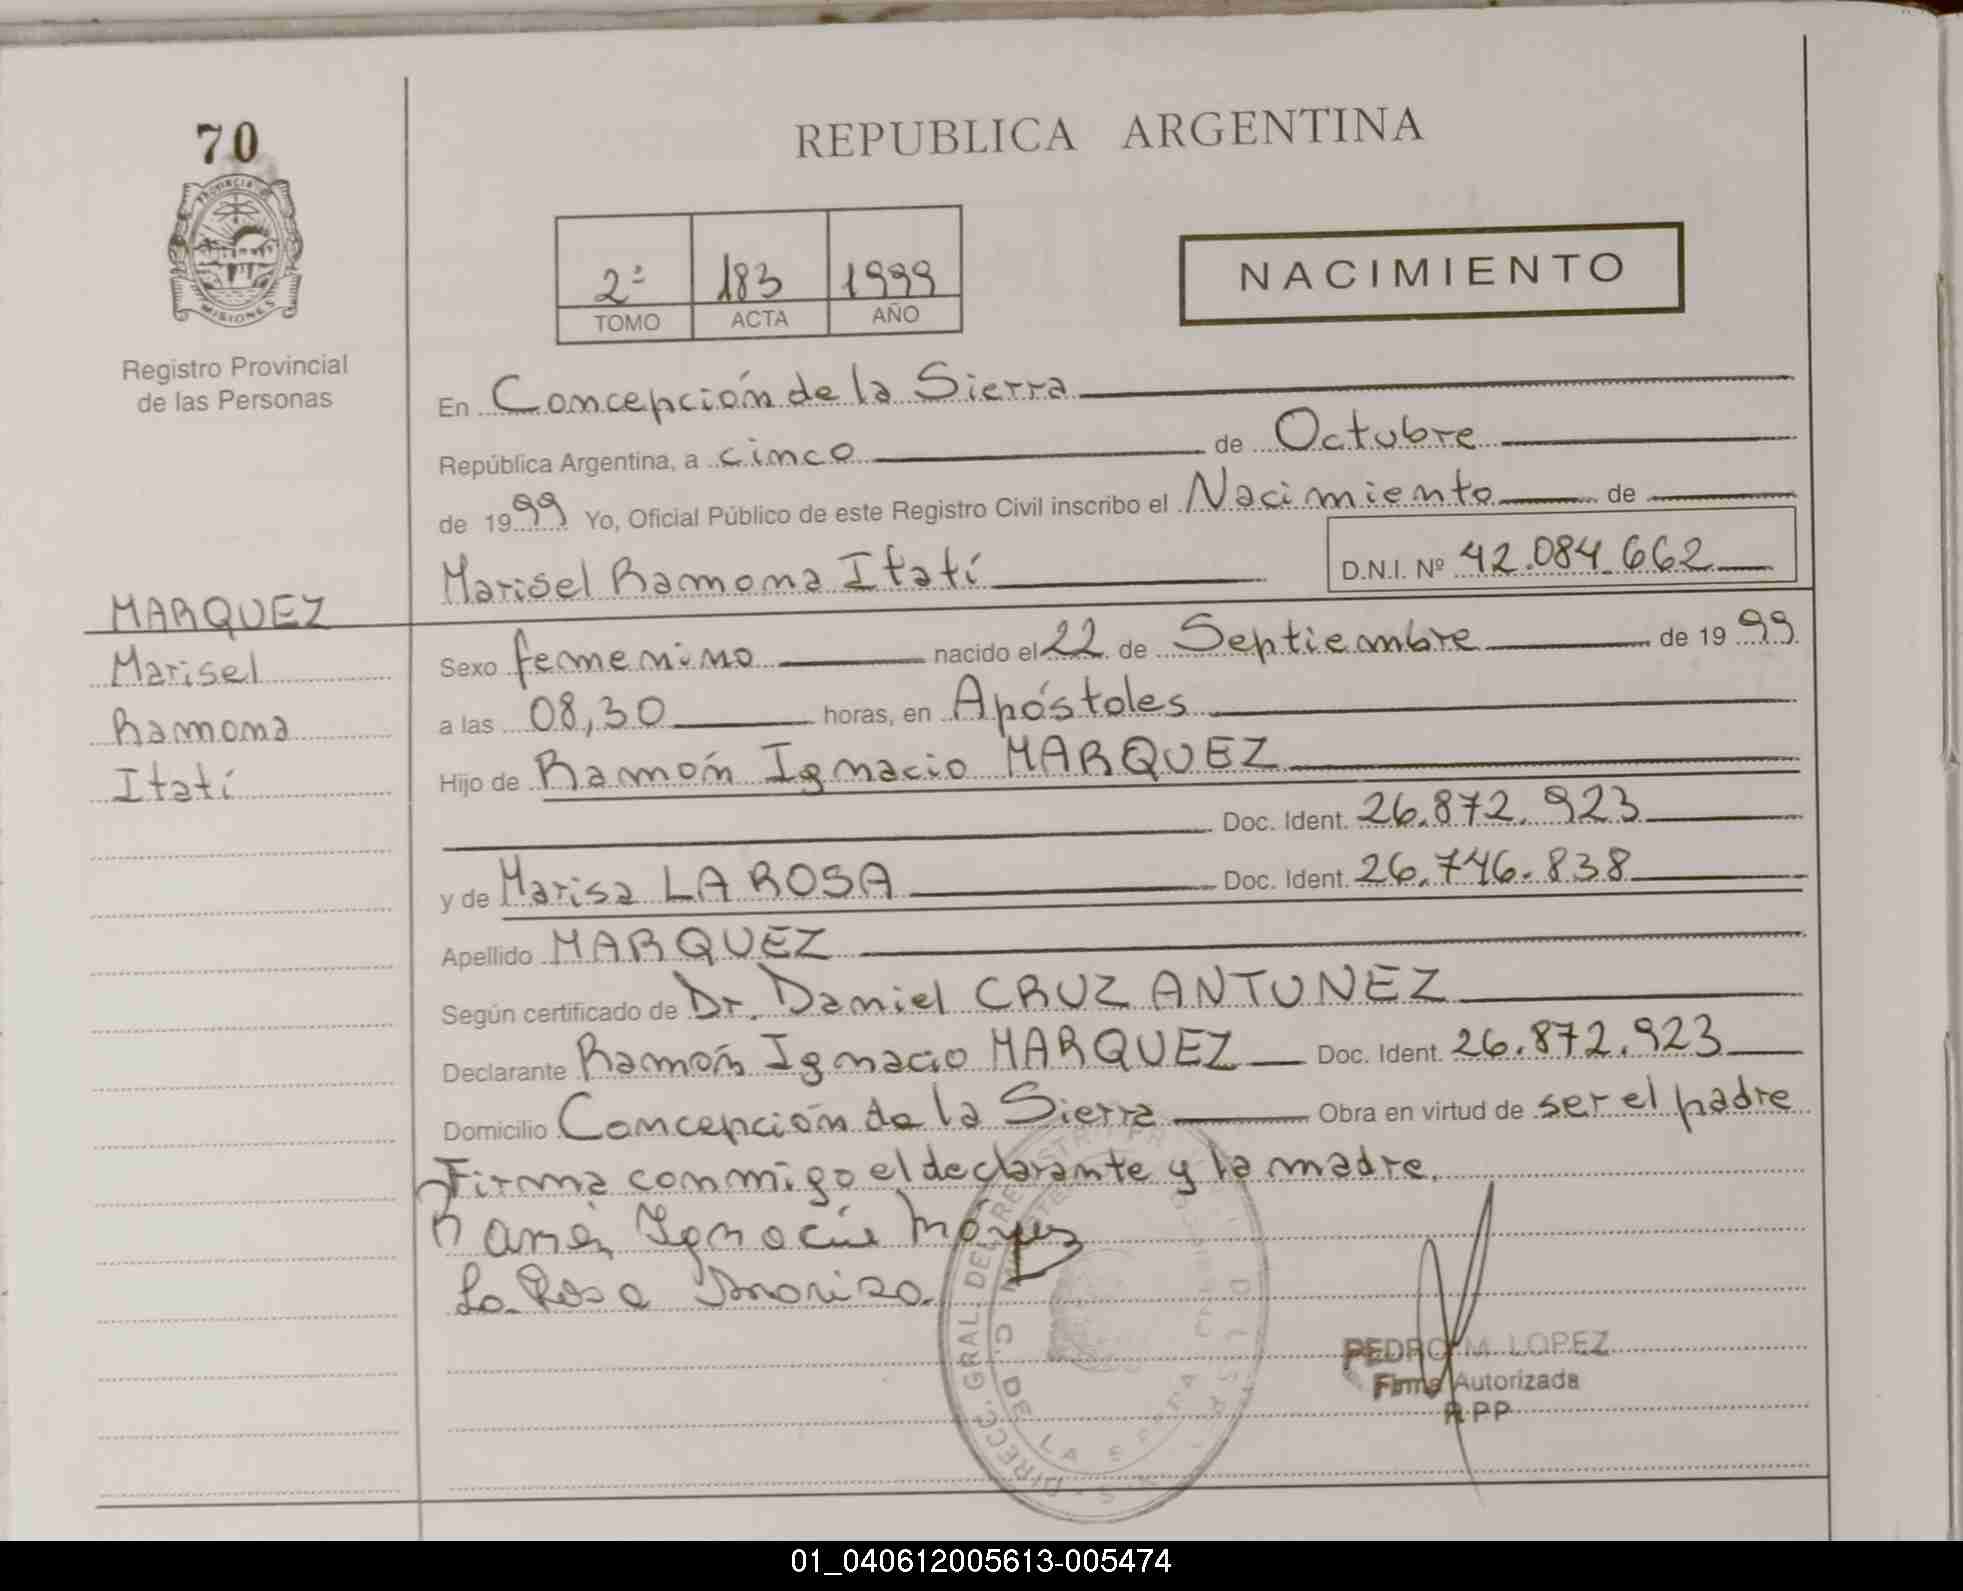 70
PROVINCIA DE
MISIONES
Registro Provincial
de las Personas
MARQUEZ
Marisel
Ramona
Itatí
REPUBLICA ARGENTINA
2º 183 1999
TOMO ACTA AÑO
NACIMIENTO
En Concepción de la Sierra
República Argentina, a cinco de Octubre
de 1999 Yo, Oficial Público de este Registro Civil inscribo el Nacimiento de
Marisel Ramona Itatí D.N.I. Nº 42.084.662
Sexo femenino nacido el 22 de Septiembre de 1999
a las 08,30 horas, en Apóstoles
Hijo de Ramón Ignacio MARQUEZ
Doc. Ident. 26.872.923
y de Marisa LA ROSA Doc. Ident. 26.746.838
Apellido MARQUEZ
Según certificado de Dr. Daniel CRUZ ANTUNEZ
Declarante Ramón Ignacio MARQUEZ Doc. Ident. 26.872.923
Domicilio Concepción de la Sierra Obra en virtud de ser el padre
Firma conmigo el declarante y la madre.
Ramón Ignacio
La Rosa Mariza.
DIRECC. GRAL. DEL REGISTRO
C. DE LA SIERRA
PEDRO M. LOPEZ
Firma Autorizada
RPP
01_040612005613-005474